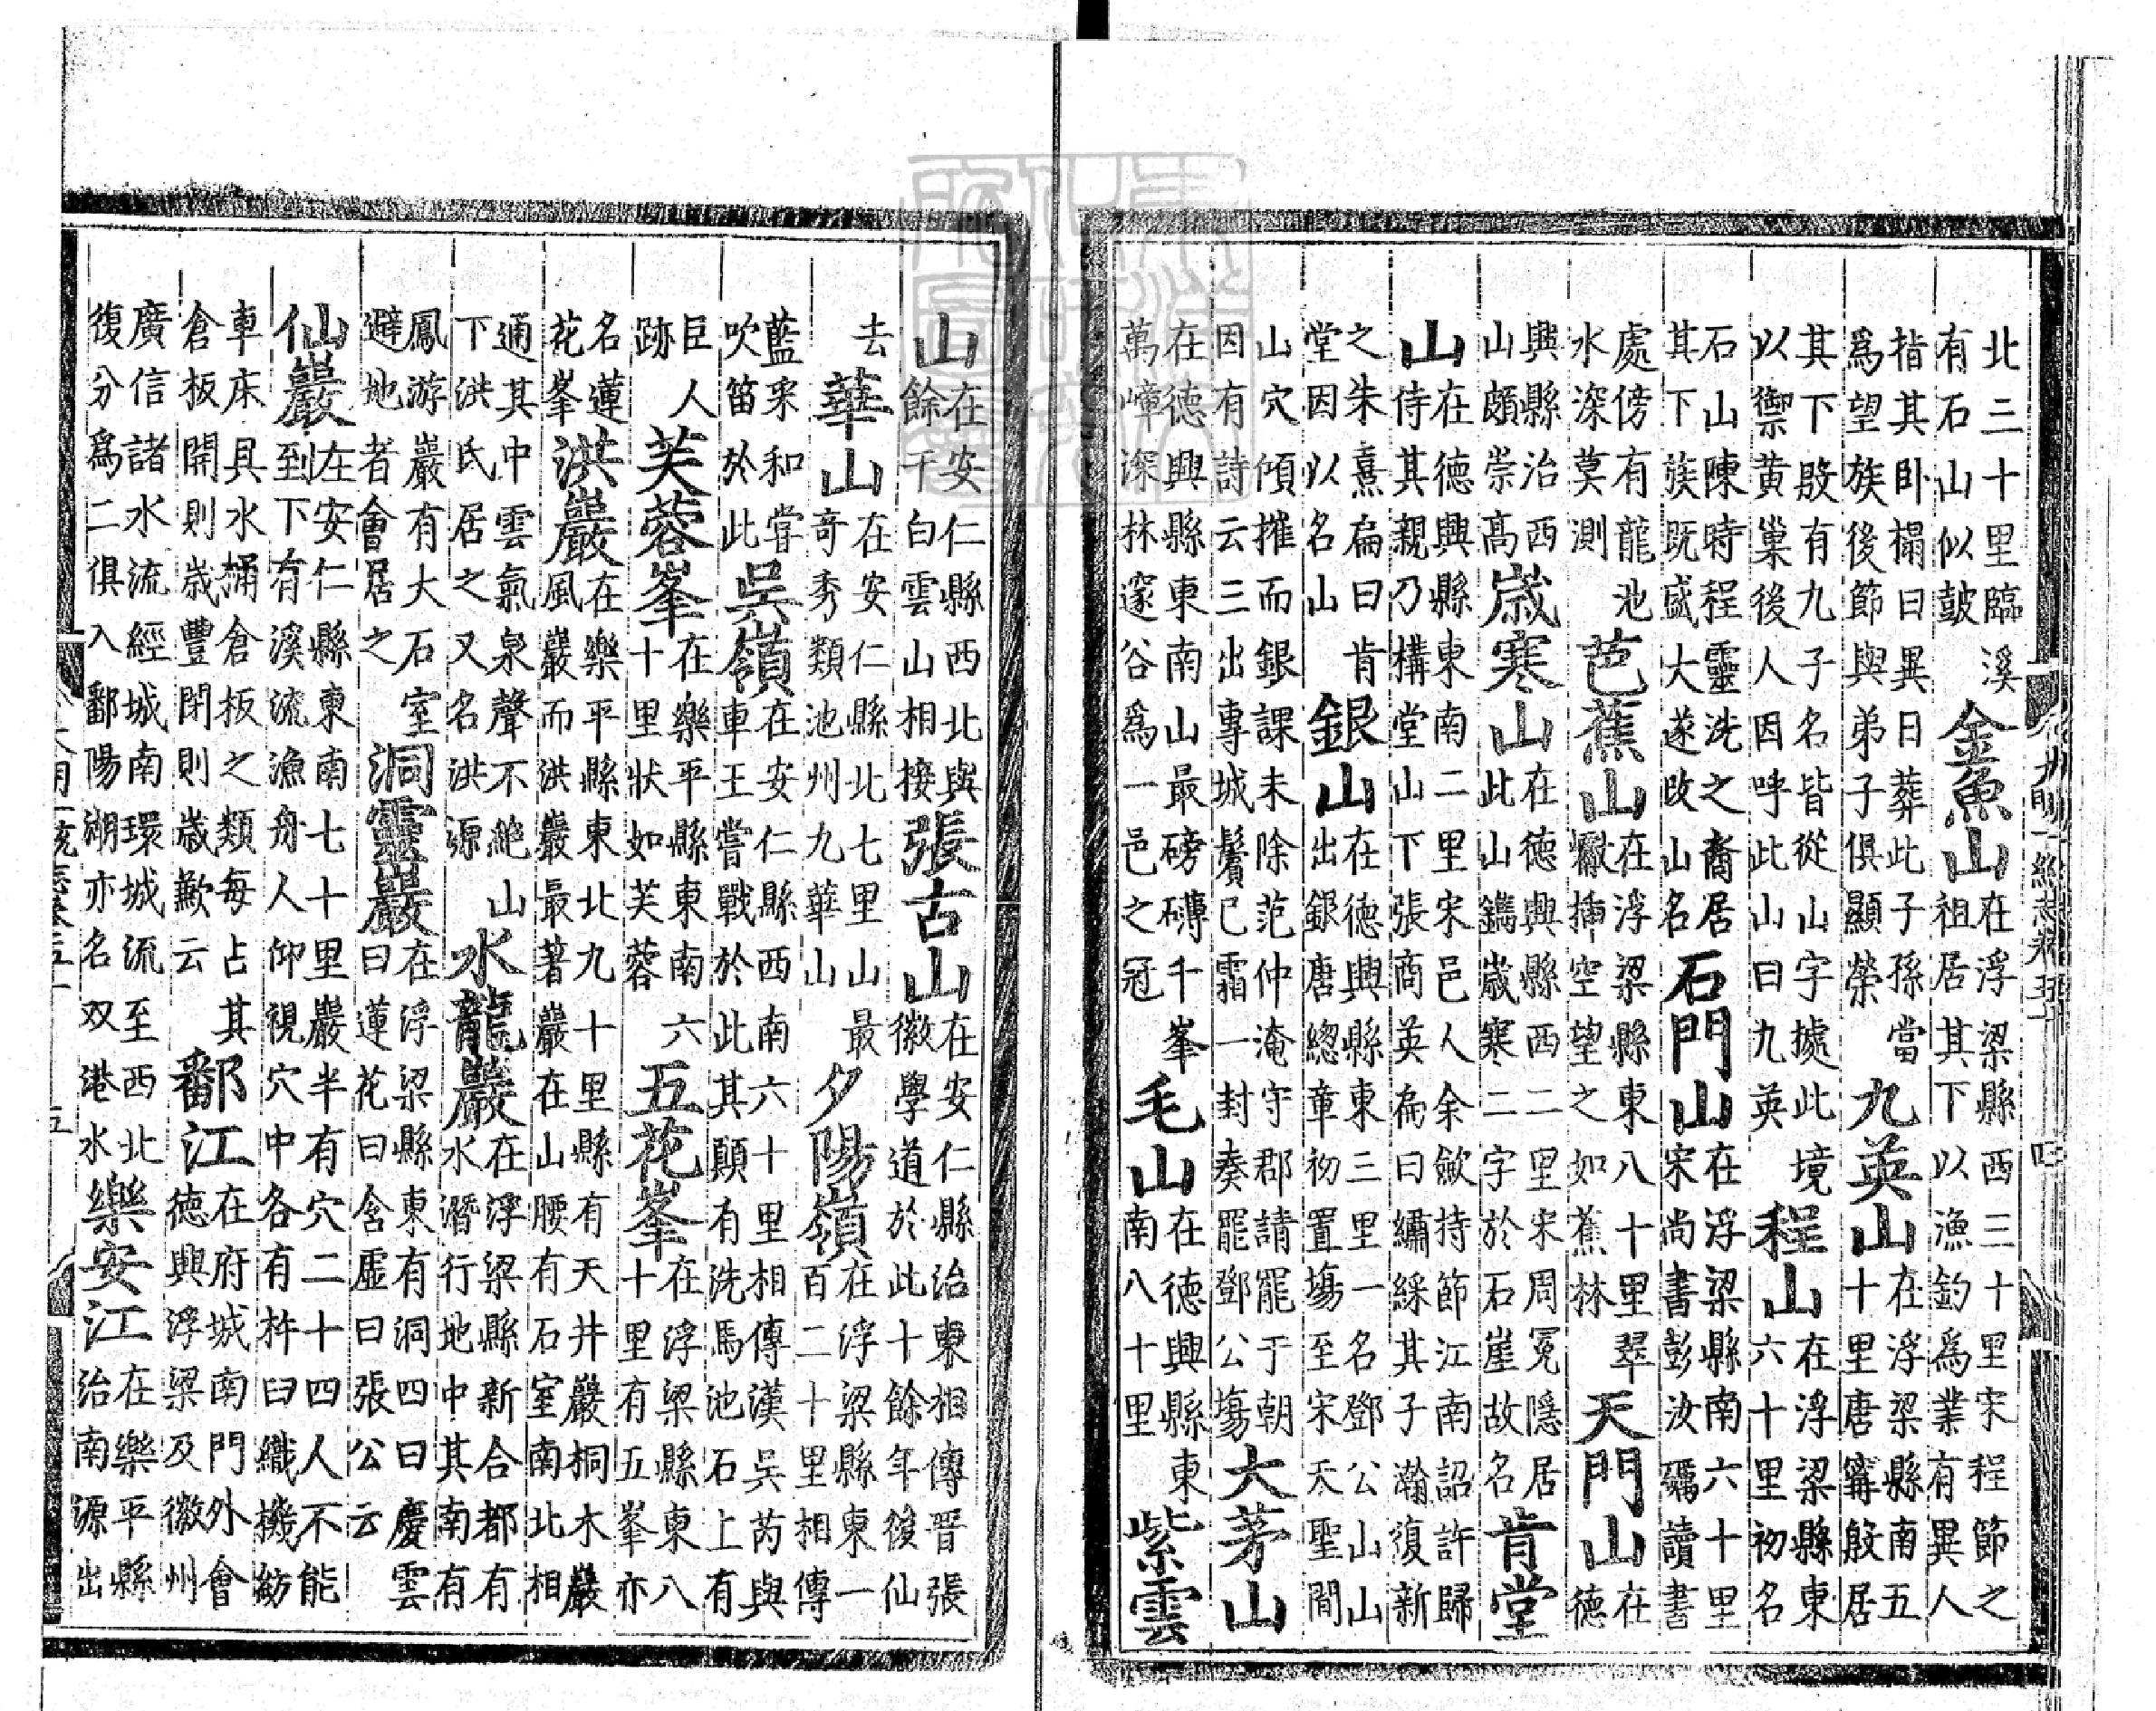 北三十里臨溪有石山似皷 金魚山 在浮梁縣西三十里宋程節之祖居其下以漁釣爲業有異人
指其卧榻曰異日葬此子孫當爲望族後節與弟子俱顯榮 九英山 在浮梁縣南五十里唐寗殷居
其下殷有九子名皆從山字據此境以禦黄巢後人因呼此山曰九英 程山 在浮梁縣東六十里初名
石山陳時程靈洗之裔居其下族既盛大遂改山名 石門山 在浮梁縣南六十里宋尚書彭汝礪讀書
處傍有龍池水深莫測 芭蕉山 在浮梁縣東八十里翠巘插空望之如蕉林 天門山 在德
興縣治西山頗崇高 歲寒山 在德興縣西二里宋周冕隱居此山鐫歲寒二字於石崖故名 肯堂
山 在德興縣東南二里宋邑人余歛持節江南詔許歸侍其親乃構堂山下張商英扁曰繡綵其子瀚復新
之朱熹扁曰肯堂因以名山 銀山 在德興縣東三里一名鄧公山山出銀唐總章初置塲至宋天聖間
山穴傾摧而銀課未除范仲淹守郡請罷于朝因有詩云三出專城鬢已霜一封奏罷鄧公塲 大茅山
在德興縣東南山最磅礴千峯萬嶂深林邃谷爲一邑之冠 毛山 在德興縣東南八十里 紫雲
大明一統志卷五十 四
山 在安仁縣西北與餘干白雲山相接 張古山 在安仁縣治東相傳晋張徽學道於此十餘年後仙
去 華山 在安仁縣北七里山最奇秀類池州九華山 夕陽嶺 在浮梁縣東一百二十里相傳
藍采和嘗吹笛於此 吳嶺 在安仁縣西南六十里相傳漢吳芮與車王嘗戰於此其顛有洗馬池石上有
巨人跡 芙蓉峯 在樂平縣東南六十里狀如芙蓉 五花峯 在浮梁縣東八十里有五峯亦
名蓮花峯 洪巖 在樂平縣東北九十里縣有天井巖桐木巖風巖而洪巖最著巖在山腰有石室南北相
通其中雲氣泉聲不絶山下洪氏居之又名洪源 水龍巖 在浮梁縣新合都有水潛行地中其南有
鳳游巖有大石室避地者會居之 洞靈巖 在浮梁縣東有洞四曰慶雲曰蓮花曰含虛曰張公云
仙巖 在安仁縣東南七十里巖半有穴二十四人不能到至下有溪流漁舟人仰視穴中各有杵臼織機紡
車床具水桶倉板之類每占其倉板開則歲豐閉則歲歉云 鄱江 在府城南門外會德興浮梁及徽州
廣信諸水流經城南環城流至西北復分爲二俱入鄱陽湖亦名双港水 樂安江 在樂平縣治南源出
大明一統志卷五十 五